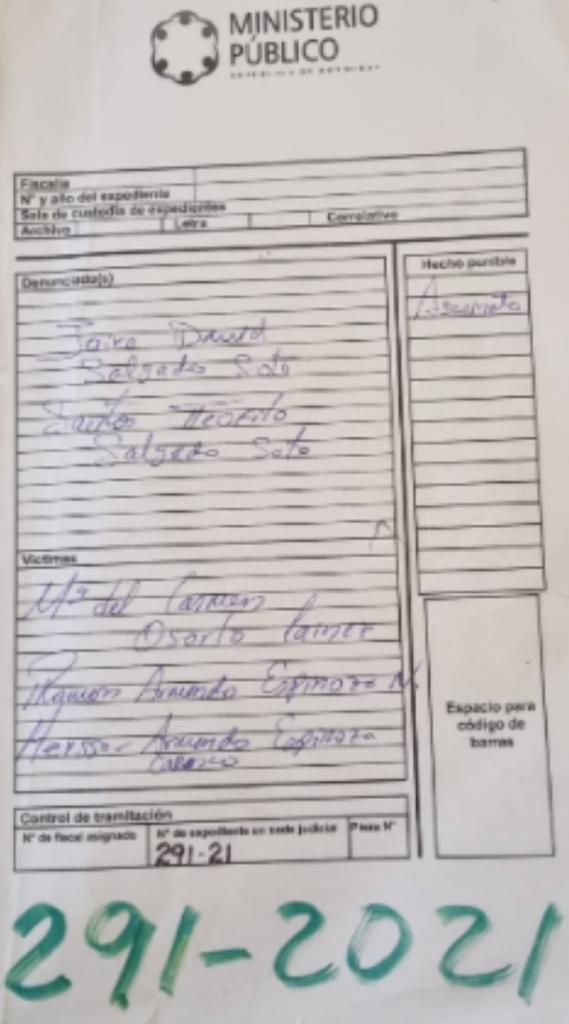 MINISTERIO
PÚBLICO
REPÚBLICA DE HONDURAS
Fiscalía
N° y año del expediente
Sala de custodia de expedientes
Archivo Letra Correlativo
Denunciado(s)
Hecho punible
Asesinato
Jairo David
Salgado Soto
Santos Teofilo
Salgado Soto
Víctimas
Mª del Carmen
Osorto
Ramon Armando Espinoza N.
Armando Espinoza
Carasco
Espacio para
código de
barras
Control de tramitación
N° de fiscal asignado N° de expediente en sede judicial Pieza N°
291-21
291-2021